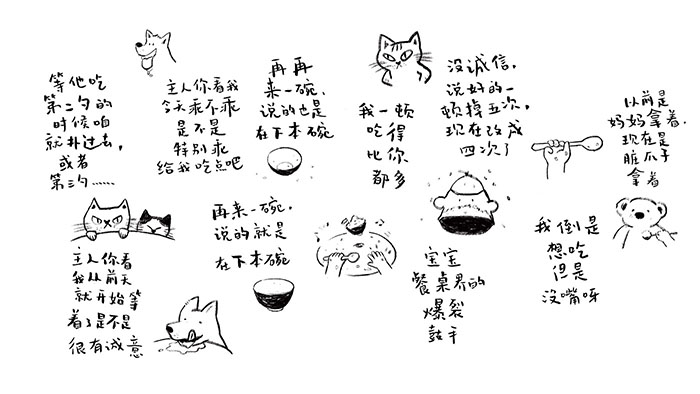 等他吃
第二勺的
时候咱
就扑过去,
或者
第三勺……
主人你看我
今天乖不乖
是不是
特别乖
给我吃点吧
再再
来一碗,
说的也是
在下本碗
我一顿
吃得
比你
都多
没诚信,
说好的一
顿揍五次,
现在改成
四次了
以前是
妈妈拿着,
现在是
脏爪子
拿着
主人你看
我从前天
就开始等
着了是不是
很有诚意
再来一碗,
说的就是
在下本碗
宝宝
餐桌界的
爆裂
鼓手
我倒是
想吃
但是
没嘴呀